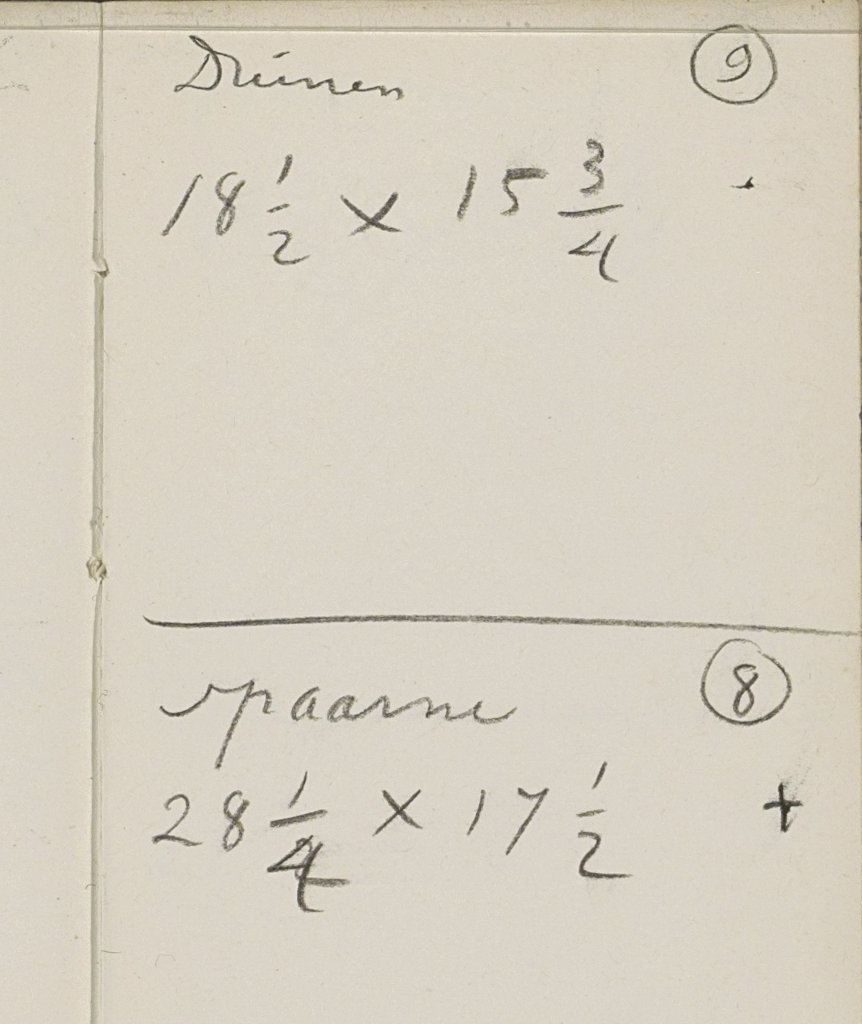 Drünen 9
18 1/2 × 15 3/4
spaarne 8
28 1/4 × 17 1/2 +